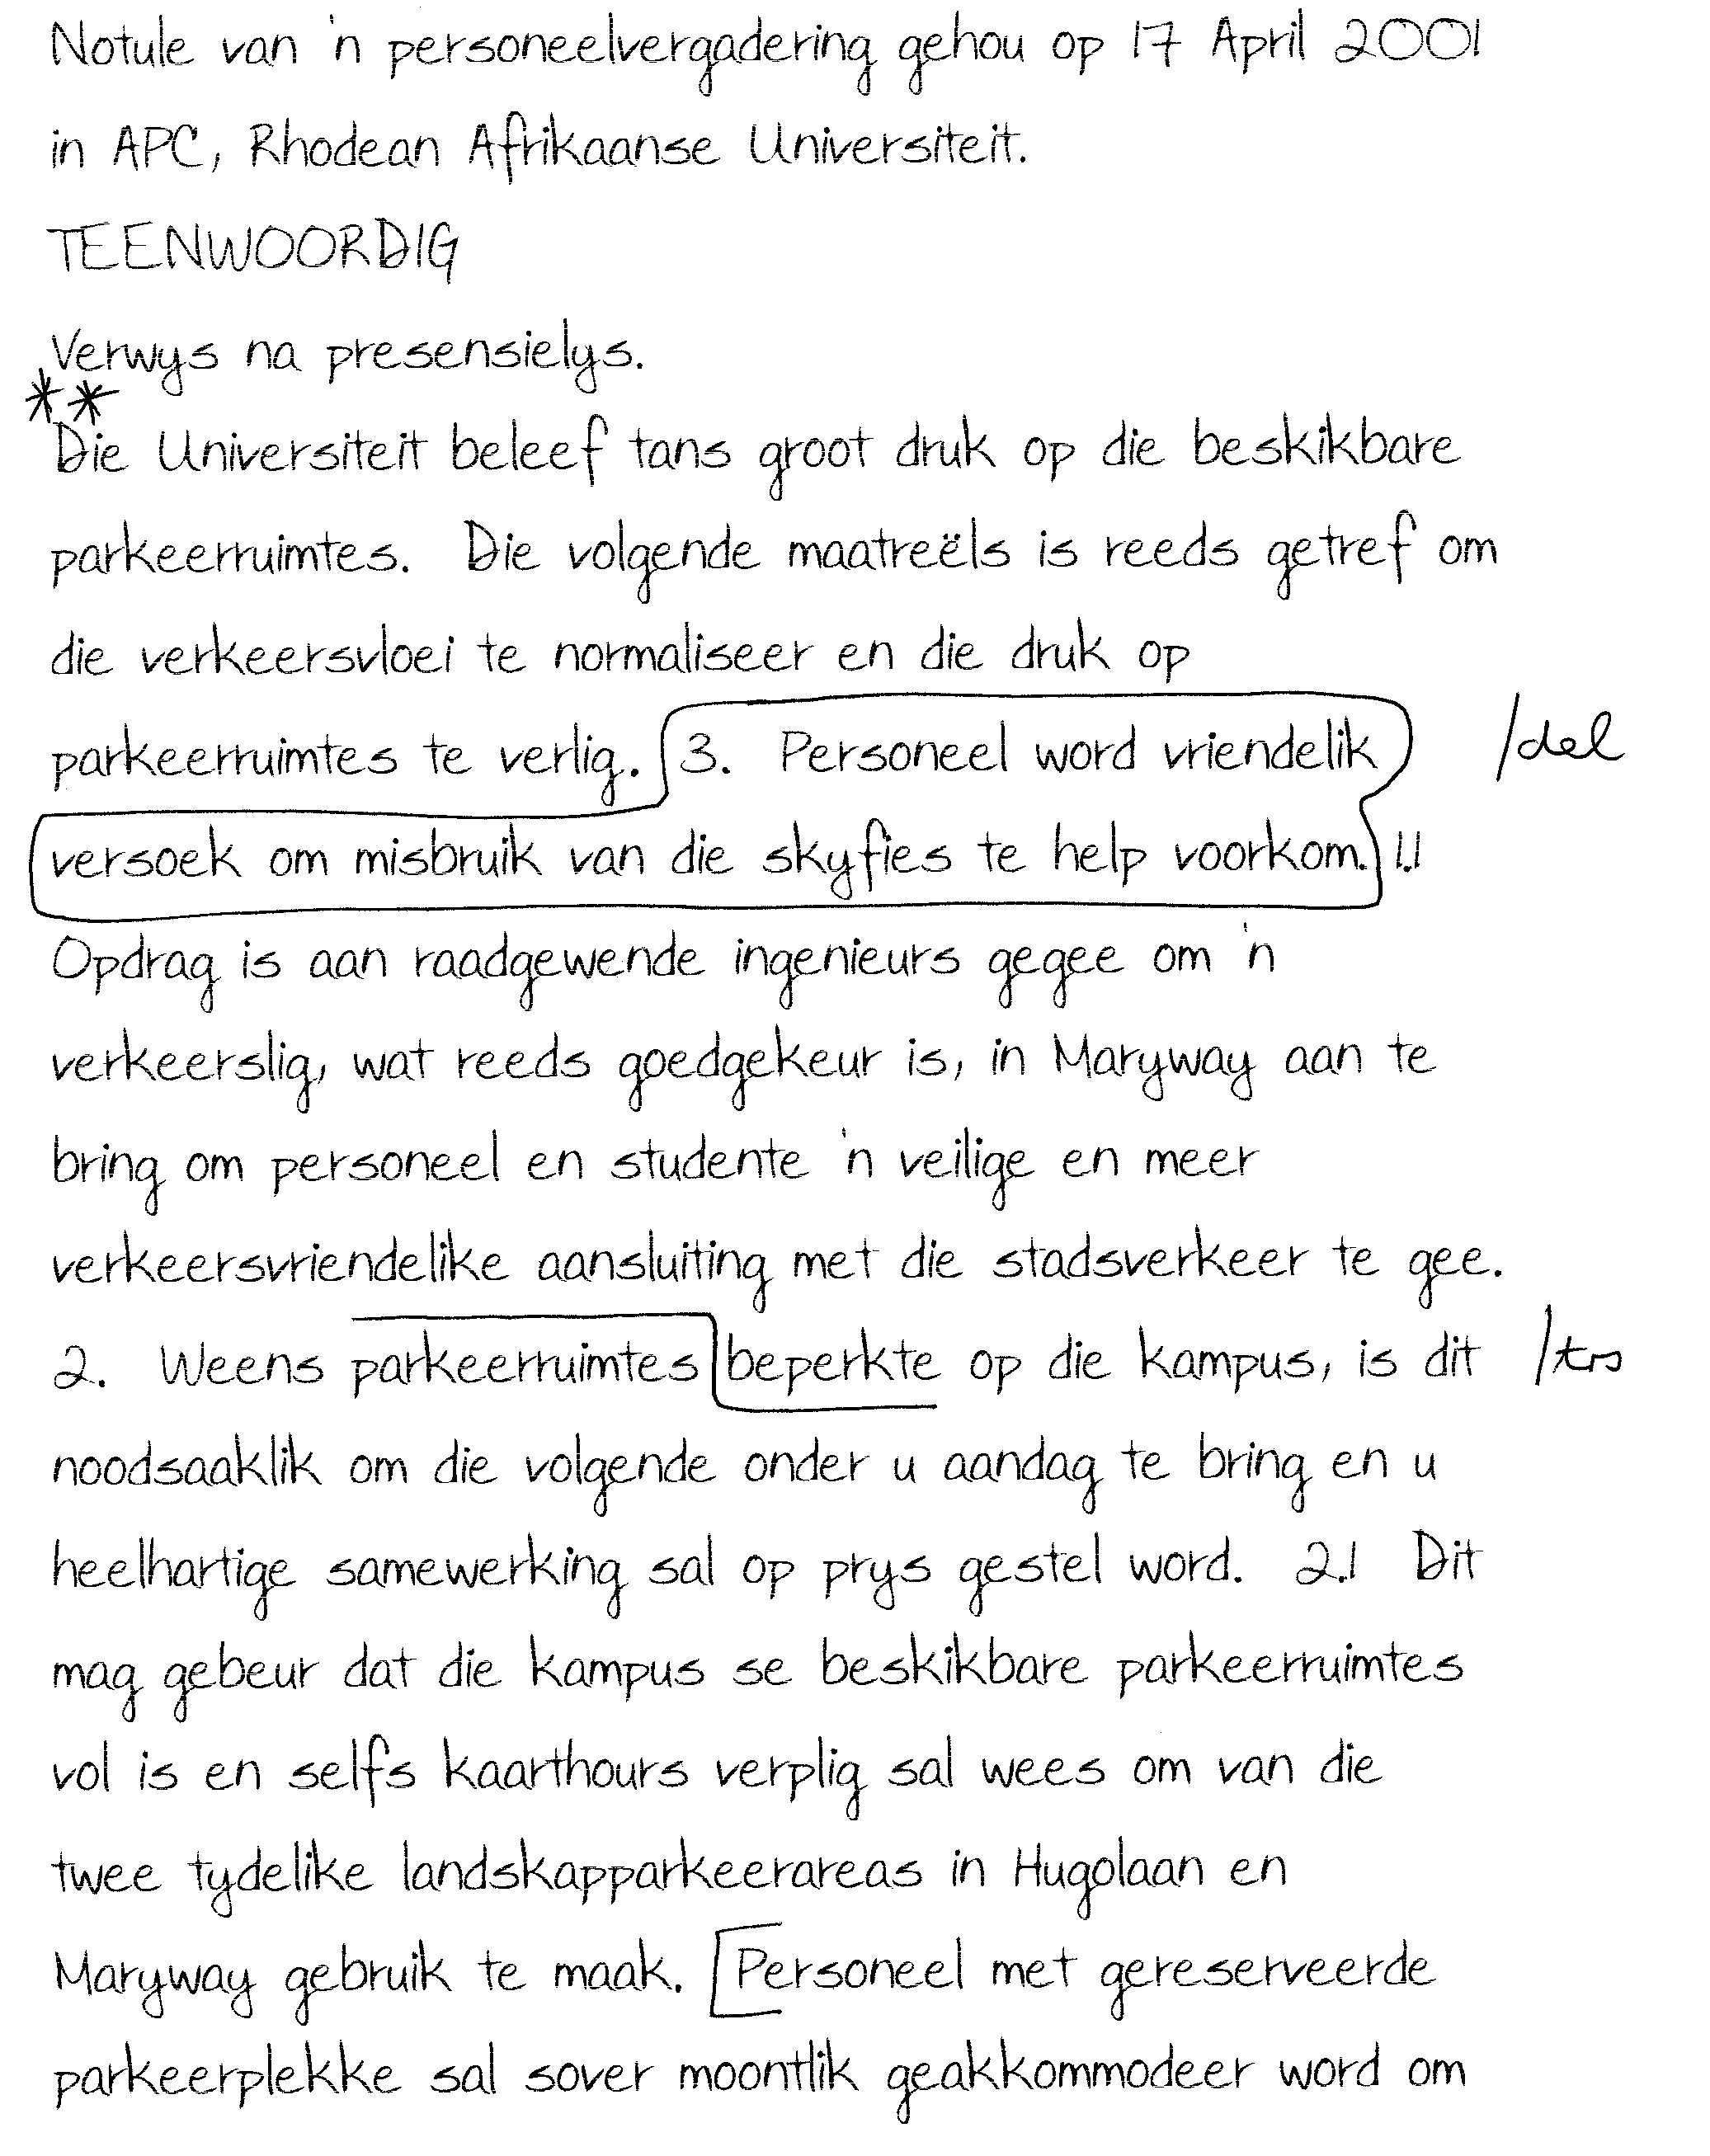 Notule van 'n personeelvergadering gehou op 17 April 2001
in APC, Rhodean Afrikaanse Universiteit.
TEENWOORDIG
Verwys na presensielys.
**
Die Universiteit beleef tans groot druk op die beskikbare
parkeerruimtes. Die volgende maatreëls is reeds getref om
die verkeersvloei te normaliseer en die druk op
parkeerruimtes te verlig. 3. Personeel word vriendelik /del
versoek om misbruik van die skyfies te help voorkom. 1.1
Opdrag is aan raadgewende ingenieurs gegee om 'n
verkeerslig, wat reeds goedgekeur is, in Maryway aan te
bring om personeel en studente 'n veilige en meer
verkeersvriendelike aansluiting met die stadsverkeer te gee.
2. Weens parkeerruimtes beperkte op die kampus, is dit /trs
noodsaaklik om die volgende onder u aandag te bring en u
heelhartige samewerking sal op prys gestel word. 2.1 Dit
mag gebeur dat die kampus se beskikbare parkeerruimtes
vol is en selfs kaarthours verplig sal wees om van die
twee tydelike landskapparkeerareas in Hugolaan en
Maryway gebruik te maak. [Personeel met gereserveerde
parkeerplekke sal sover moontlik geakkommodeer word om